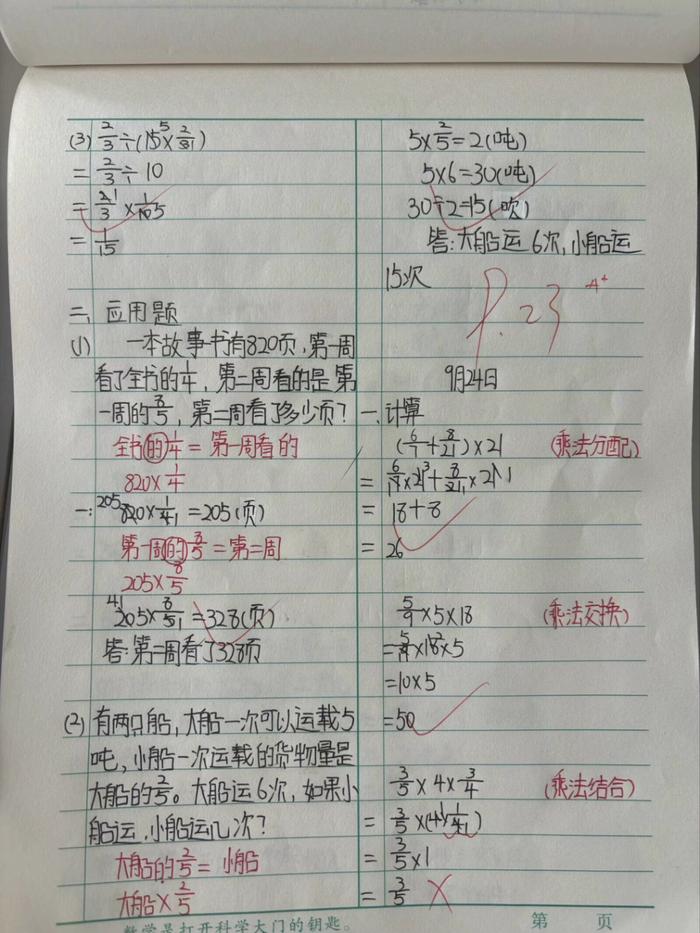 (3) 2/3÷(15×2/3)
= 2/3÷10
= 2/3×1/10
= 1/15
二、应用题
(1) 一本故事书有820页,第一周
看了全书的1/4,第二周看的是第
一周的8/5,第二周看了多少页?
全书的1/4=第一周看的
820×1/4
一:820×1/4=205(页)
第一周的8/5=第二周
205×8/5
205×8/5=328(页)
答:第二周看了328页
(2) 有两只船,大船一次可以运载5
吨,小船一次运载的货物量是
大船的2/5。大船运6次,如果小
船运,小船运几次?
大船的2/5=小船
大船×2/5
5×2/5=2(吨)
5×6=30(吨)
30÷2=15(次)
答:大船运6次,小船运
15次
P.23
A+
9月24日
一、计算
(6/7+8/21)×21 (乘法分配)
= 6/7×21+8/21×21
= 18+8
= 26
5/9×5×18 (乘法交换)
=5/9×18×5
=10×5
=50
3/5×4×3/4 (乘法结合)
= 3/5×(4×1/4)
= 3/5×1
= 3/5
数学是打开科学大门的钥匙。
第 页